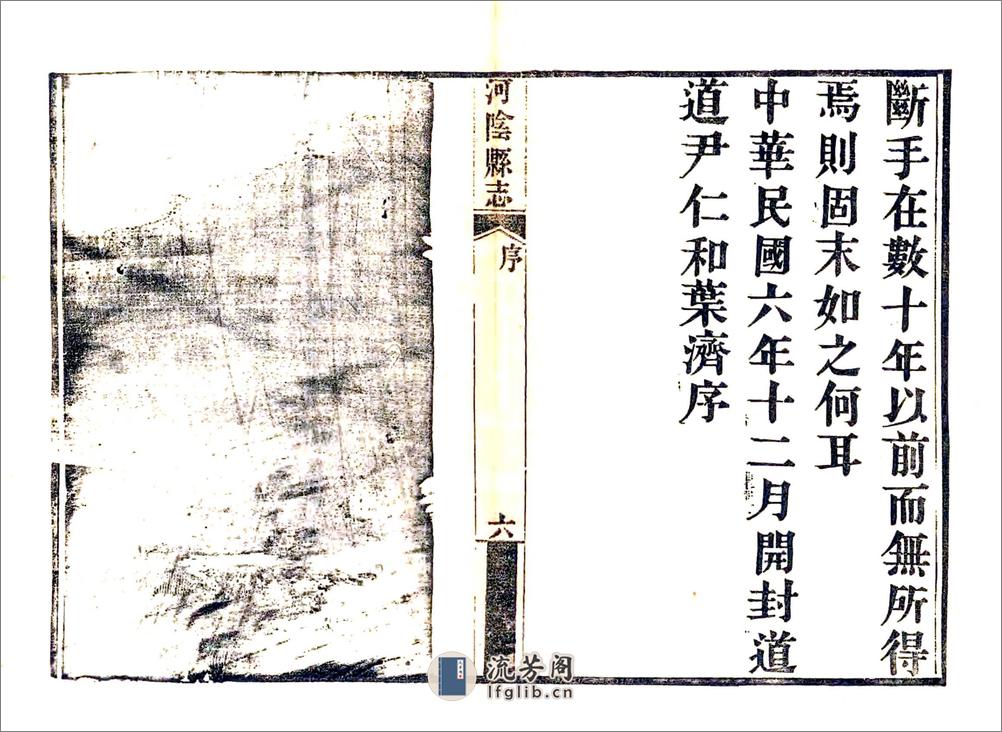 斷手在數十年以前而無所得
焉則固末如之何耳
中華民國六年十二月開封道
道尹仁和葉濟序
河陰縣志
序
六
流芳阁
lfglib.cn